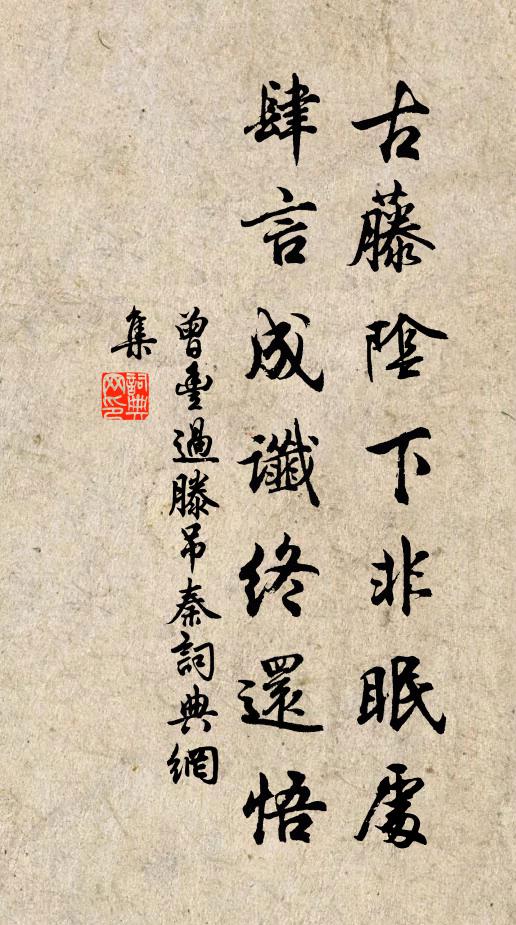 古藤陰下非眠處
肆言成讖終還悟
曾豊過滕吊秦詞典網
集
詞典網印